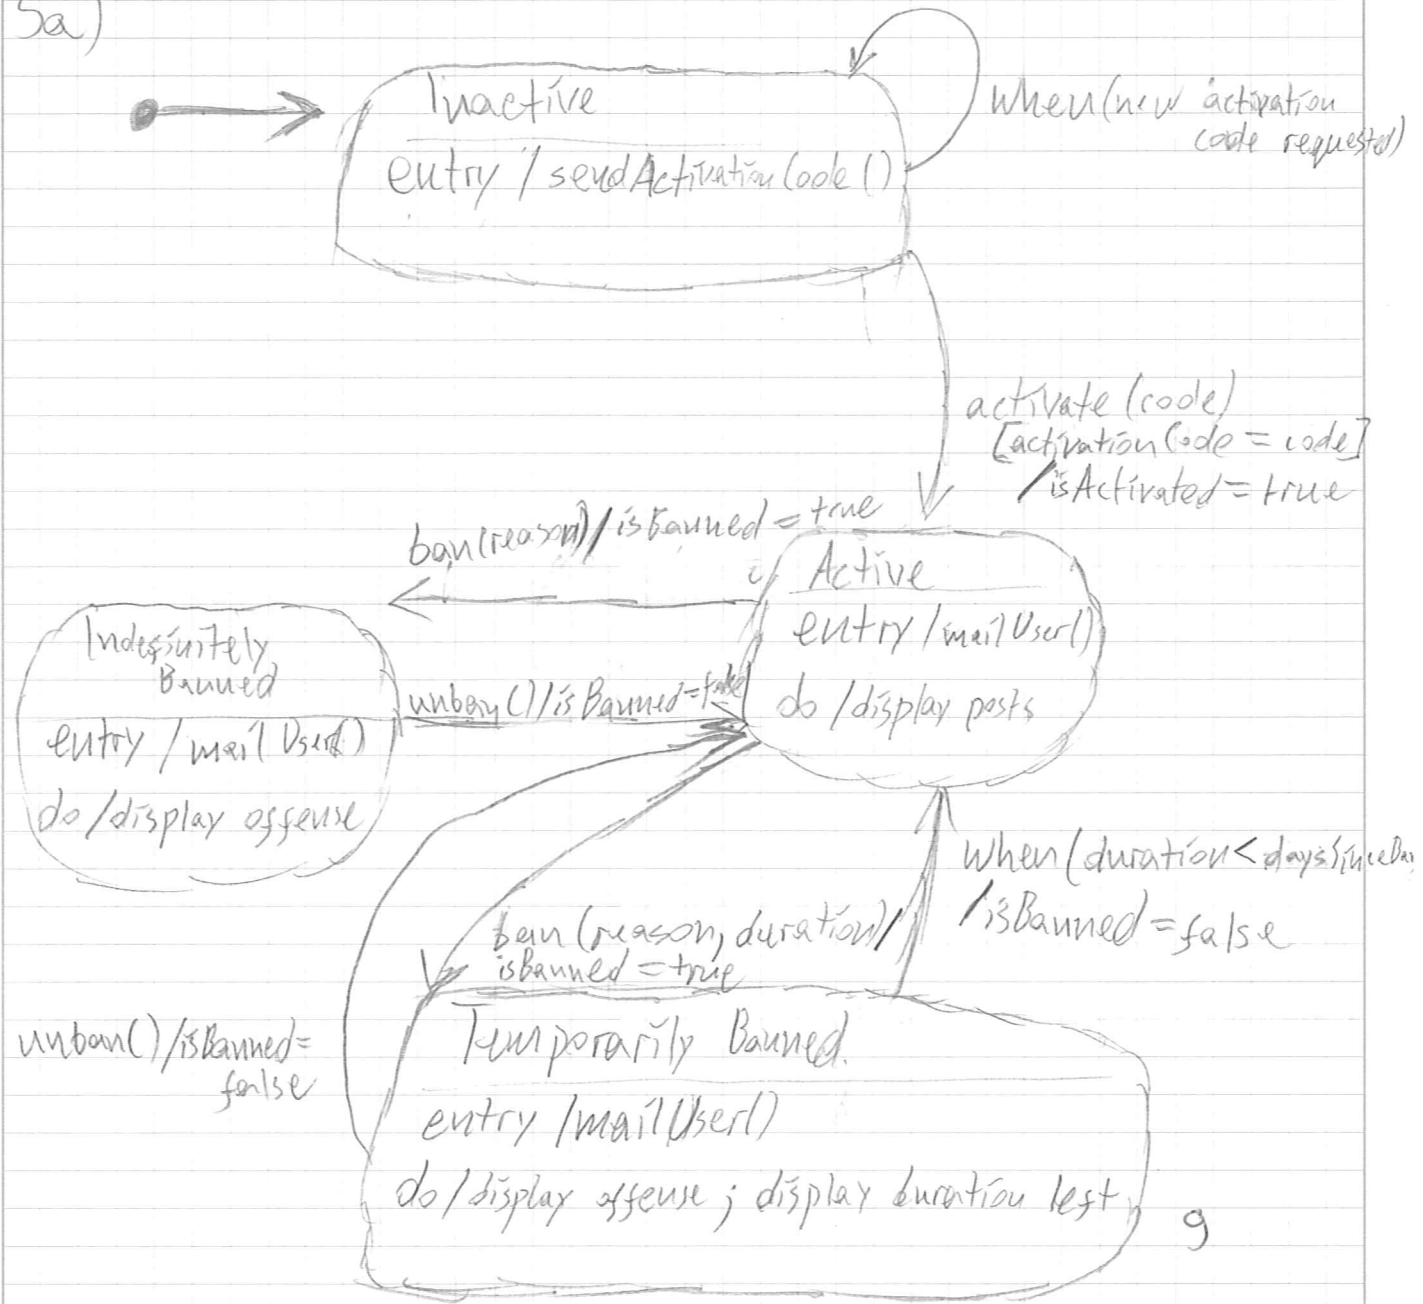 5a)
Inactive
entry / sendActivationCode ()
when(new activation
code requested)
activate (code)
[activationCode = code]
/isActivated = true
ban(reason)/isBanned = true
Active
entry /mailUser()
do /display posts
Indefinitely
Banned
entry /mailUser()
do/display offense
unban()/isBanned=false
when(duration<daysSinceBan
/isBanned=false
ban(reason, duration)/
isBanned=true
unban()/isBanned=
false
Temporarily Banned
entry /mailUser()
do/display offense ; display duration left
9